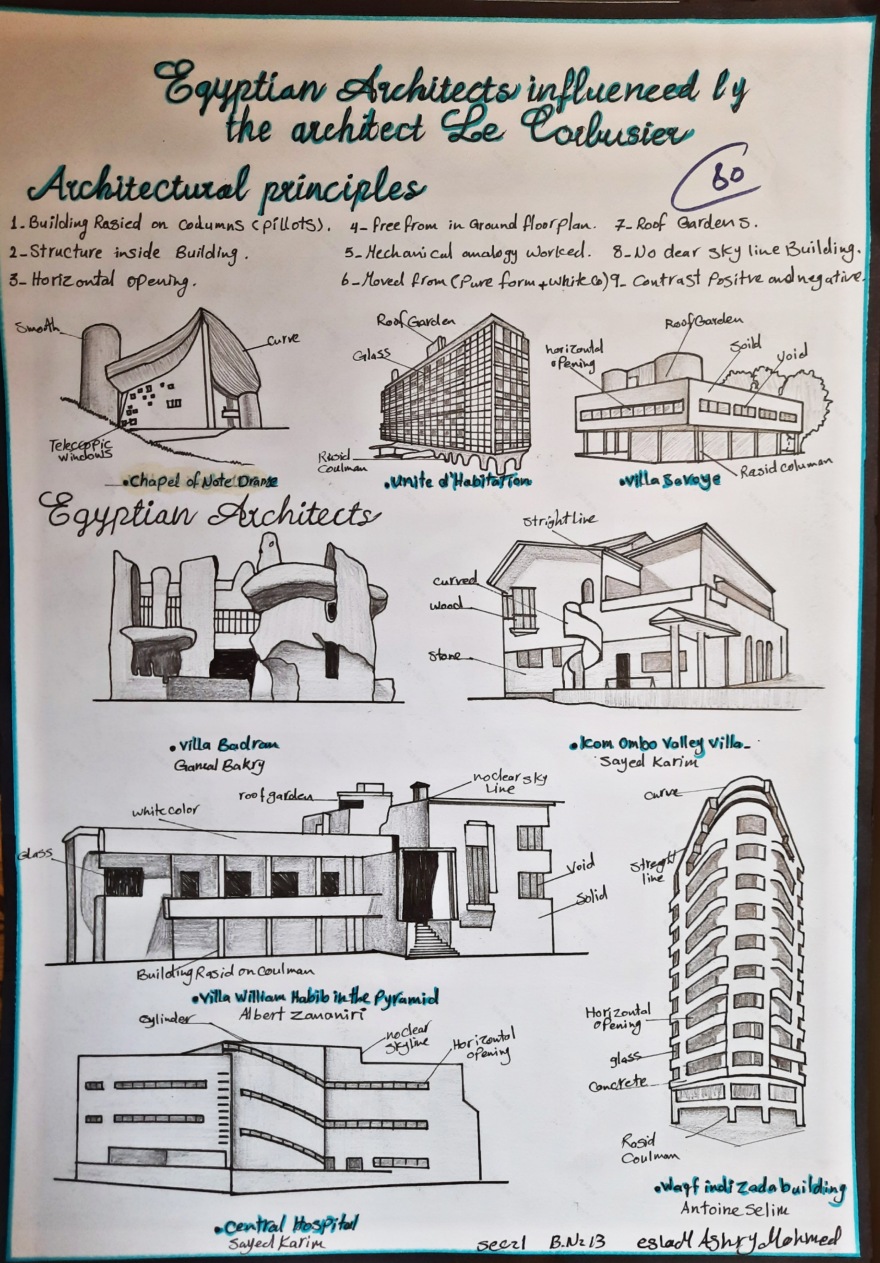 Egyptian Architects influenced by
the architect Le Corbusier
Architectural principles
80
1-Building Rasied on Codumns (pillots).
2-Structure inside Building.
3-Horizontal opening.
4-free from in Ground floorplan.
5-Mechanical analogy worked.
6-Moved from (Pure form+white Co)
7-Roof Gardens.
8-No clear sky line Building.
9-Contrast Positve and negative.
Smooth
Curve
Telecopic
windows
•Chapel of Note Drame
Roof Garden
Glass
Rasid
Coulman
•Unite d'Habitation
Roof Garden
horizontal
opening
Soild
void
Rasid column
•villa Savoye
Egyptian Architects
•Villa Badran
Gamal Bakry
Stright Line
curved
wood
Stone
•Kom Ombo Valley Villa-
Sayed Karim
white color
roof garden
no clear sky
Line
Glass
Void
Solid
Building Rasid on Coulman
•Villa William Habib in the Pyramid
Albert Zananiri
curve
Streght
line
Horizontal
opening
glass
Concrete
Rasid
Coulman
•Waqf indi Zada building
Antoine Selim
Cylinder
no clear
skyline
Horizontal
opening
•Central Hospital
Sayed Karim
sec21 B.N: 13 eslam Ashry Mohmed